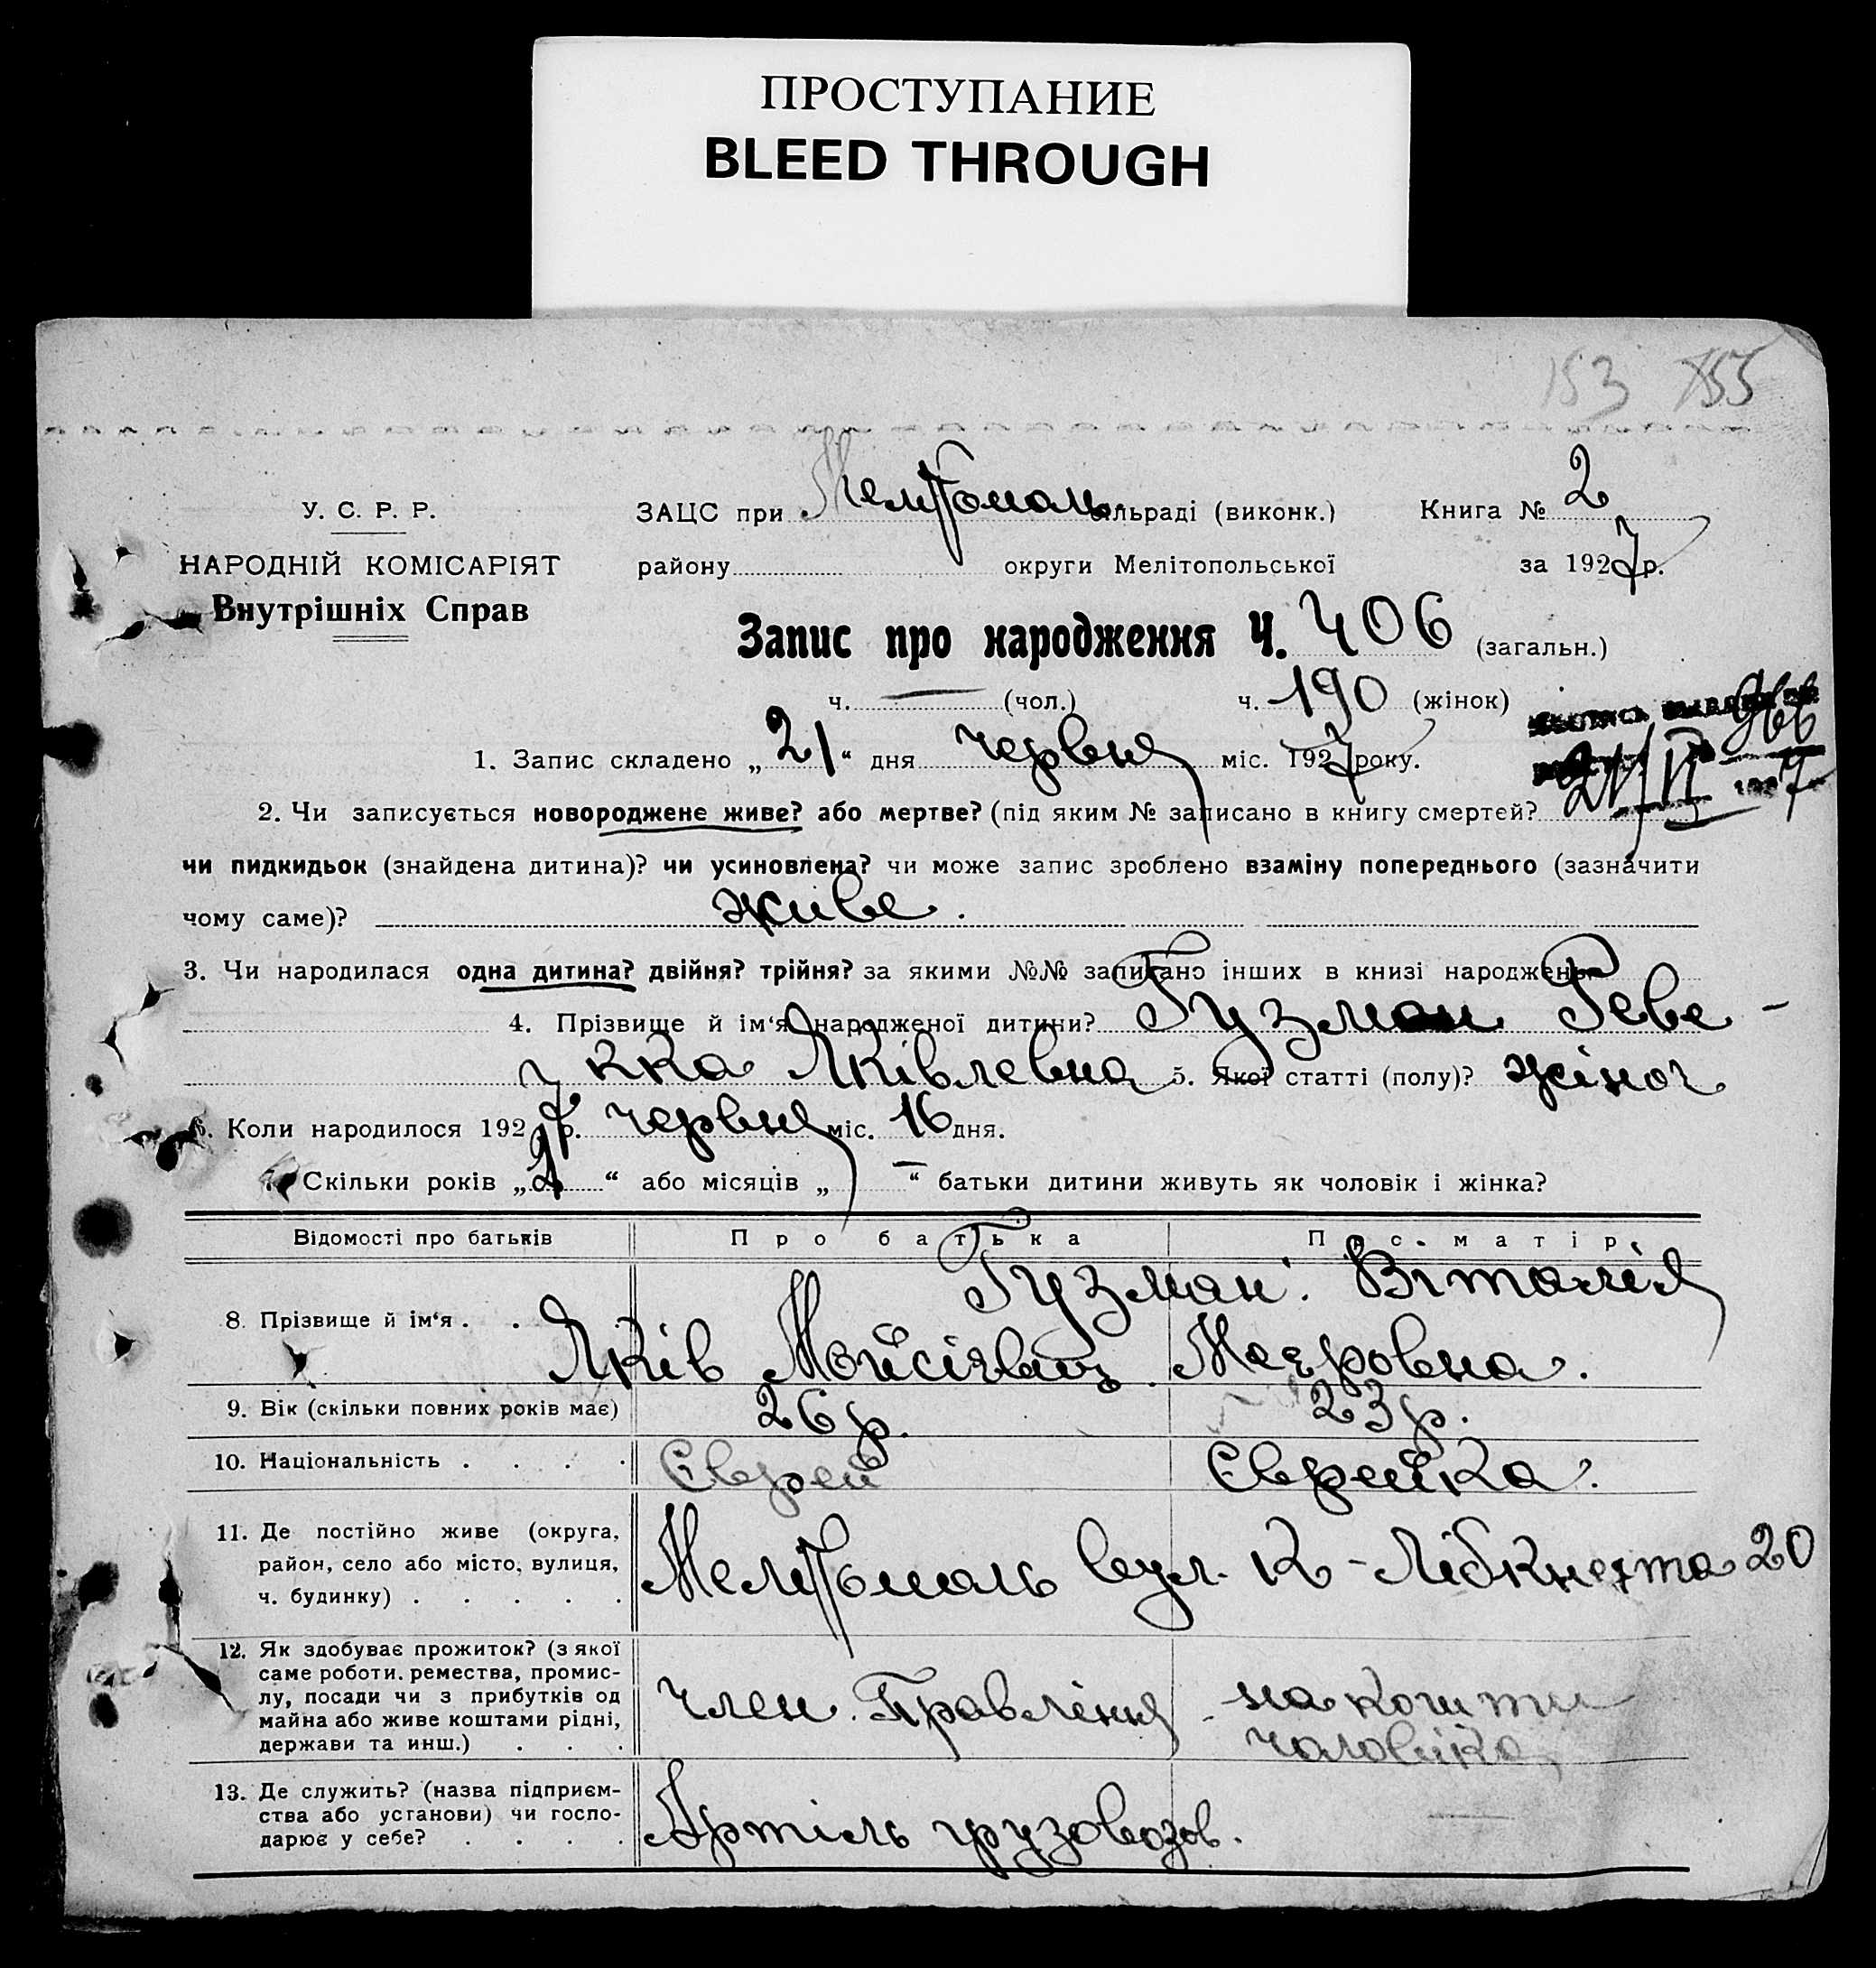 ПРОСТУПАНИЕ
BLEED THROUGH
153 155
У. С. Р. Р.
НАРОДНІЙ КОМІСАРІЯТ
Внутрішніх Справ
ЗАЦС при Мелітополь сільраді (виконк.) Книга № 2
району округи Мелітопольської за 1927 р.
Запис про народження Ч. 406 (загальн.)
ч. — (чол.) ч. 190 (жінок)
1. Запис складено „21“ дня червня міс. 1927 року.
2. Чи записується новороджене живе? або мертве? (під яким № записано в книгу смертей?
чи пидкидьок (знайдена дитина)? чи усиновлена? чи може запис зроблено взаміну попереднього (зазначити
чому саме)? живе.
3. Чи народилася одна дитина? двійня? трійня? за якими №№ записано інших в книзі народжень
4. Прізвище й ім‘я народженої дитини? Гузман Реве-
кка Яківлевна 5. Якої статті (полу)? жіноч
6. Коли народилося 1927 р. червня міс. 16 дня.
7. Скільки років „2“ або місяців „—“ батьки дитини живуть як чоловік і жінка?
Відомості про батьків Про батька Про матір
8. Прізвище й ім‘я . . Гузман. Віталія
Яків Мойсієвич Маеровна.
9. Вік (скільки повних років має) 26 р. 23 р.
10. Національність . . . . Єврей Єврейка.
11. Де постійно живе (округа,
район, село або місто, вулиця,
ч. будинку) . . . . . Мелітополь вул. К-Лібкнехта 20
12. Як здобуває прожиток? (з якої
саме роботи. ремества, промис-
лу, посади чи з прибутків од
майна або живе коштами рідні,
держави та инш.) . . .
Член. Правління на кошти
чоловіка
13. Де служить? (назва підприєм-
ства або установи) чи госпо-
дарює у себе? . . . .
Артіль грузовозов. —